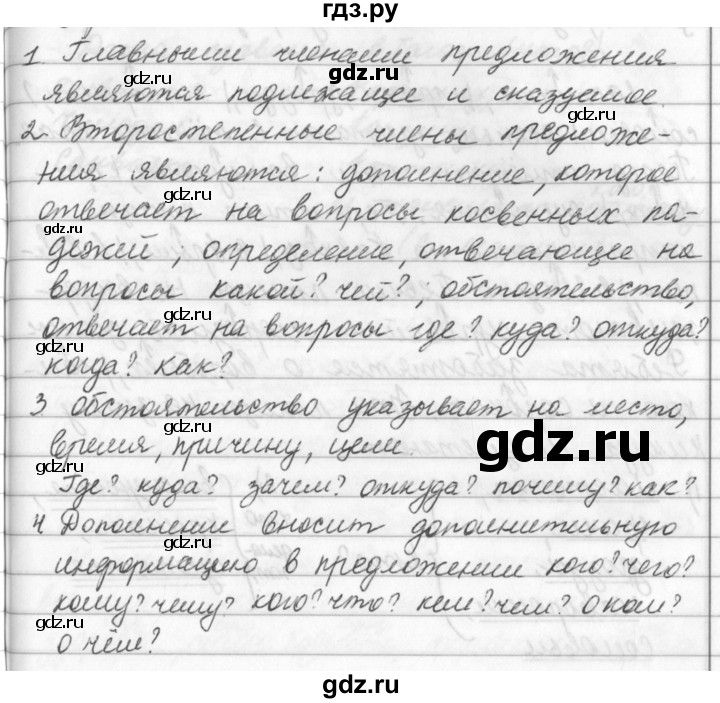 гдз.ру
1 Главными членами предложения
gdz.ru
являются подлежащее и сказуемое.
2. Второстепенные члены предложе-
ния являются: дополнение, которое
gdz.ru
отвечает на вопросы косвенных па-
дежей; определение, отвечающее на
вопросы какой? чей?; обстоятельство,
gdz.ru
отвечает на вопросы где? куда? откуда?
gdz.ru
когда? как?
3 обстоятельство указывает на место,
gdz.ru
время, причину, цели.
gdz.ru
Где? куда? зачем? откуда? почему? как?
4 Дополнение вносит дополнительную
gdz.ru
информацию в предложении кого? чего?
кому? чему? кого? что? кем? чем? о ком?
gdz.ru
о чём?
gdz.ru